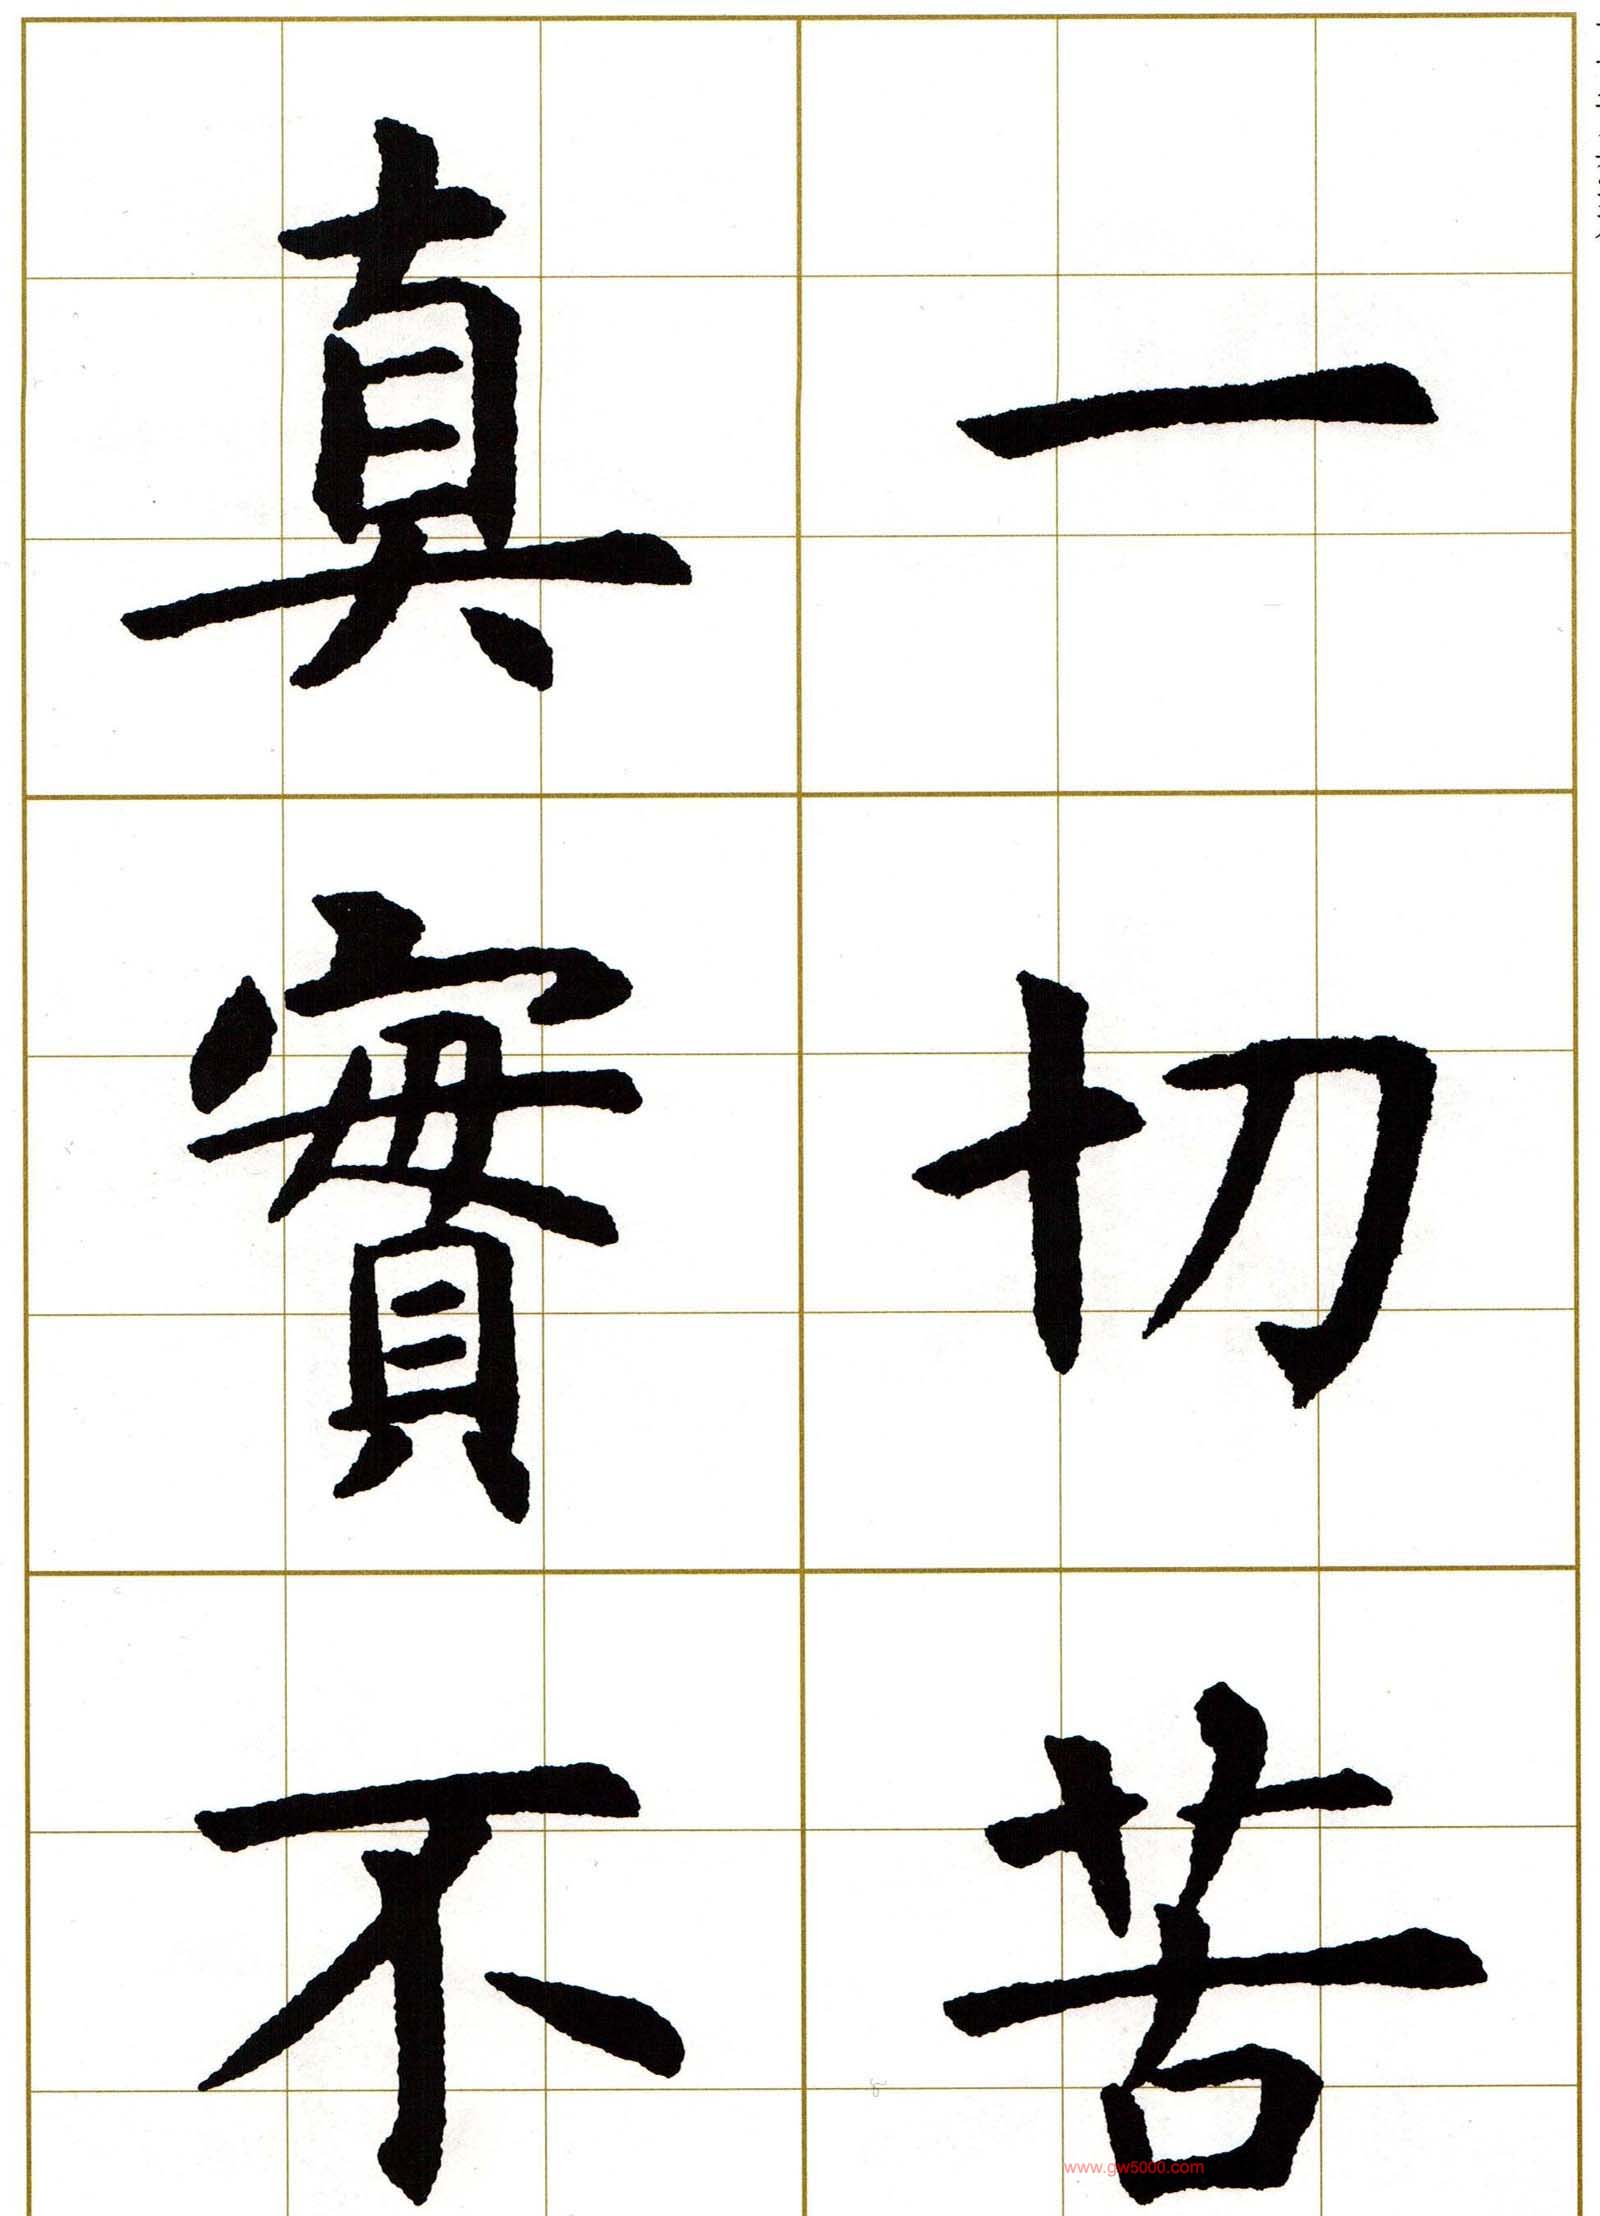 一切苦
真實不
www.gw5000.com